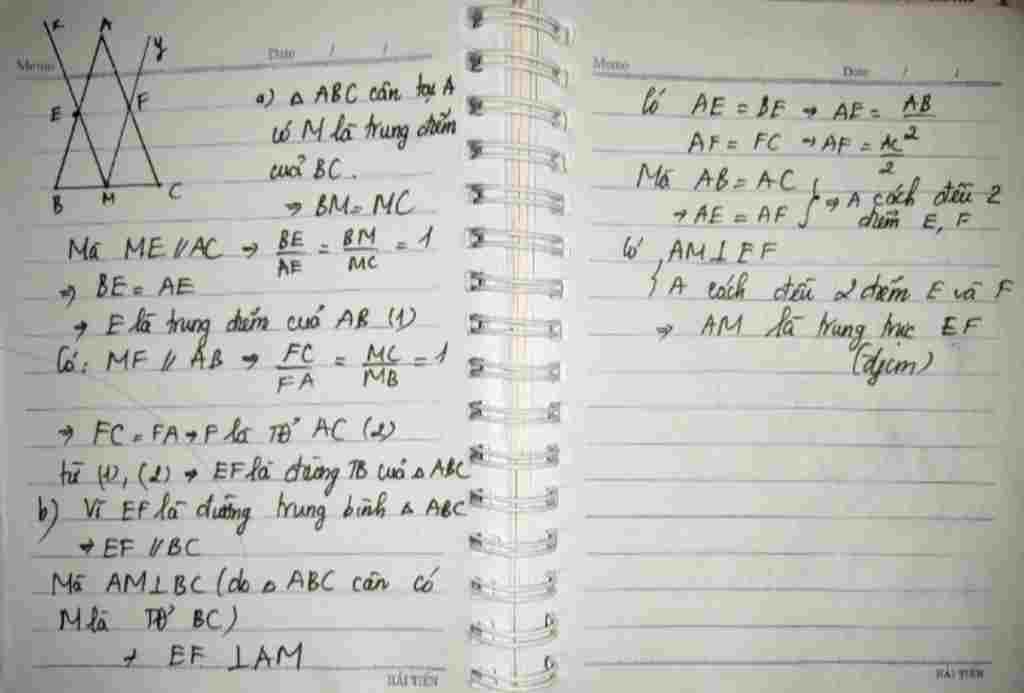 x A y
E F
B M C
Memo Date / /
a) △ ABC cân tại A
có M là trung điểm
cuả BC.
⇒ BM = MC
Mà ME // AC ⇒ BE/AE = BM/MC = 1
⇒ BE = AE
⇒ E là trung điểm cuả AB (1)
Có: MF // AB ⇒ FC/FA = MC/MB = 1
⇒ FC = FA ⇒ F là TĐ' AC (2)
từ (1), (2) ⇒ EF là đường TB cuả △ ABC
b) Vì EF là đường trung bình △ ABC
⇒ EF // BC
Mà AM ⊥ BC (do △ ABC cân có
M là TĐ' BC)
⇒ EF ⊥ AM
HẢI TIẾN
Memo Date / /
Có AE = BE ⇒ AE = AB/2
AF = FC ⇒ AF = AC/2
Mà AB = AC
⇒ AE = AF } ⇒ A cách đều 2 điểm E, F
Có { AM ⊥ EF
A cách đều 2 điểm E và F
⇒ AM là trung trực EF
(đpcm)
HẢI TIẾN